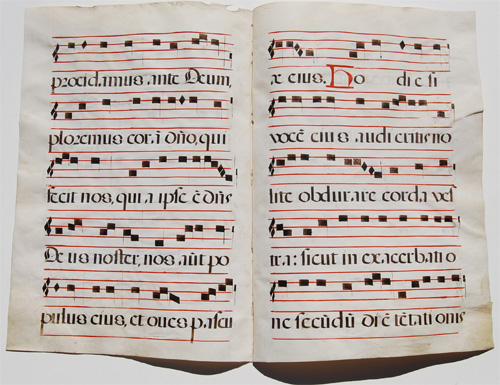 procidamus ante Deum,
ploremus corā dño, qui
fecit nos, quia ipse ē dñs
Deus noster, nos aūt po
pulus eius, et oues pascu
æ eius. Ho die si
vocē eius audieritis no
lite obdurare corda ves
tra: sicut in exacerbatio
ne secūdū diē tētationis